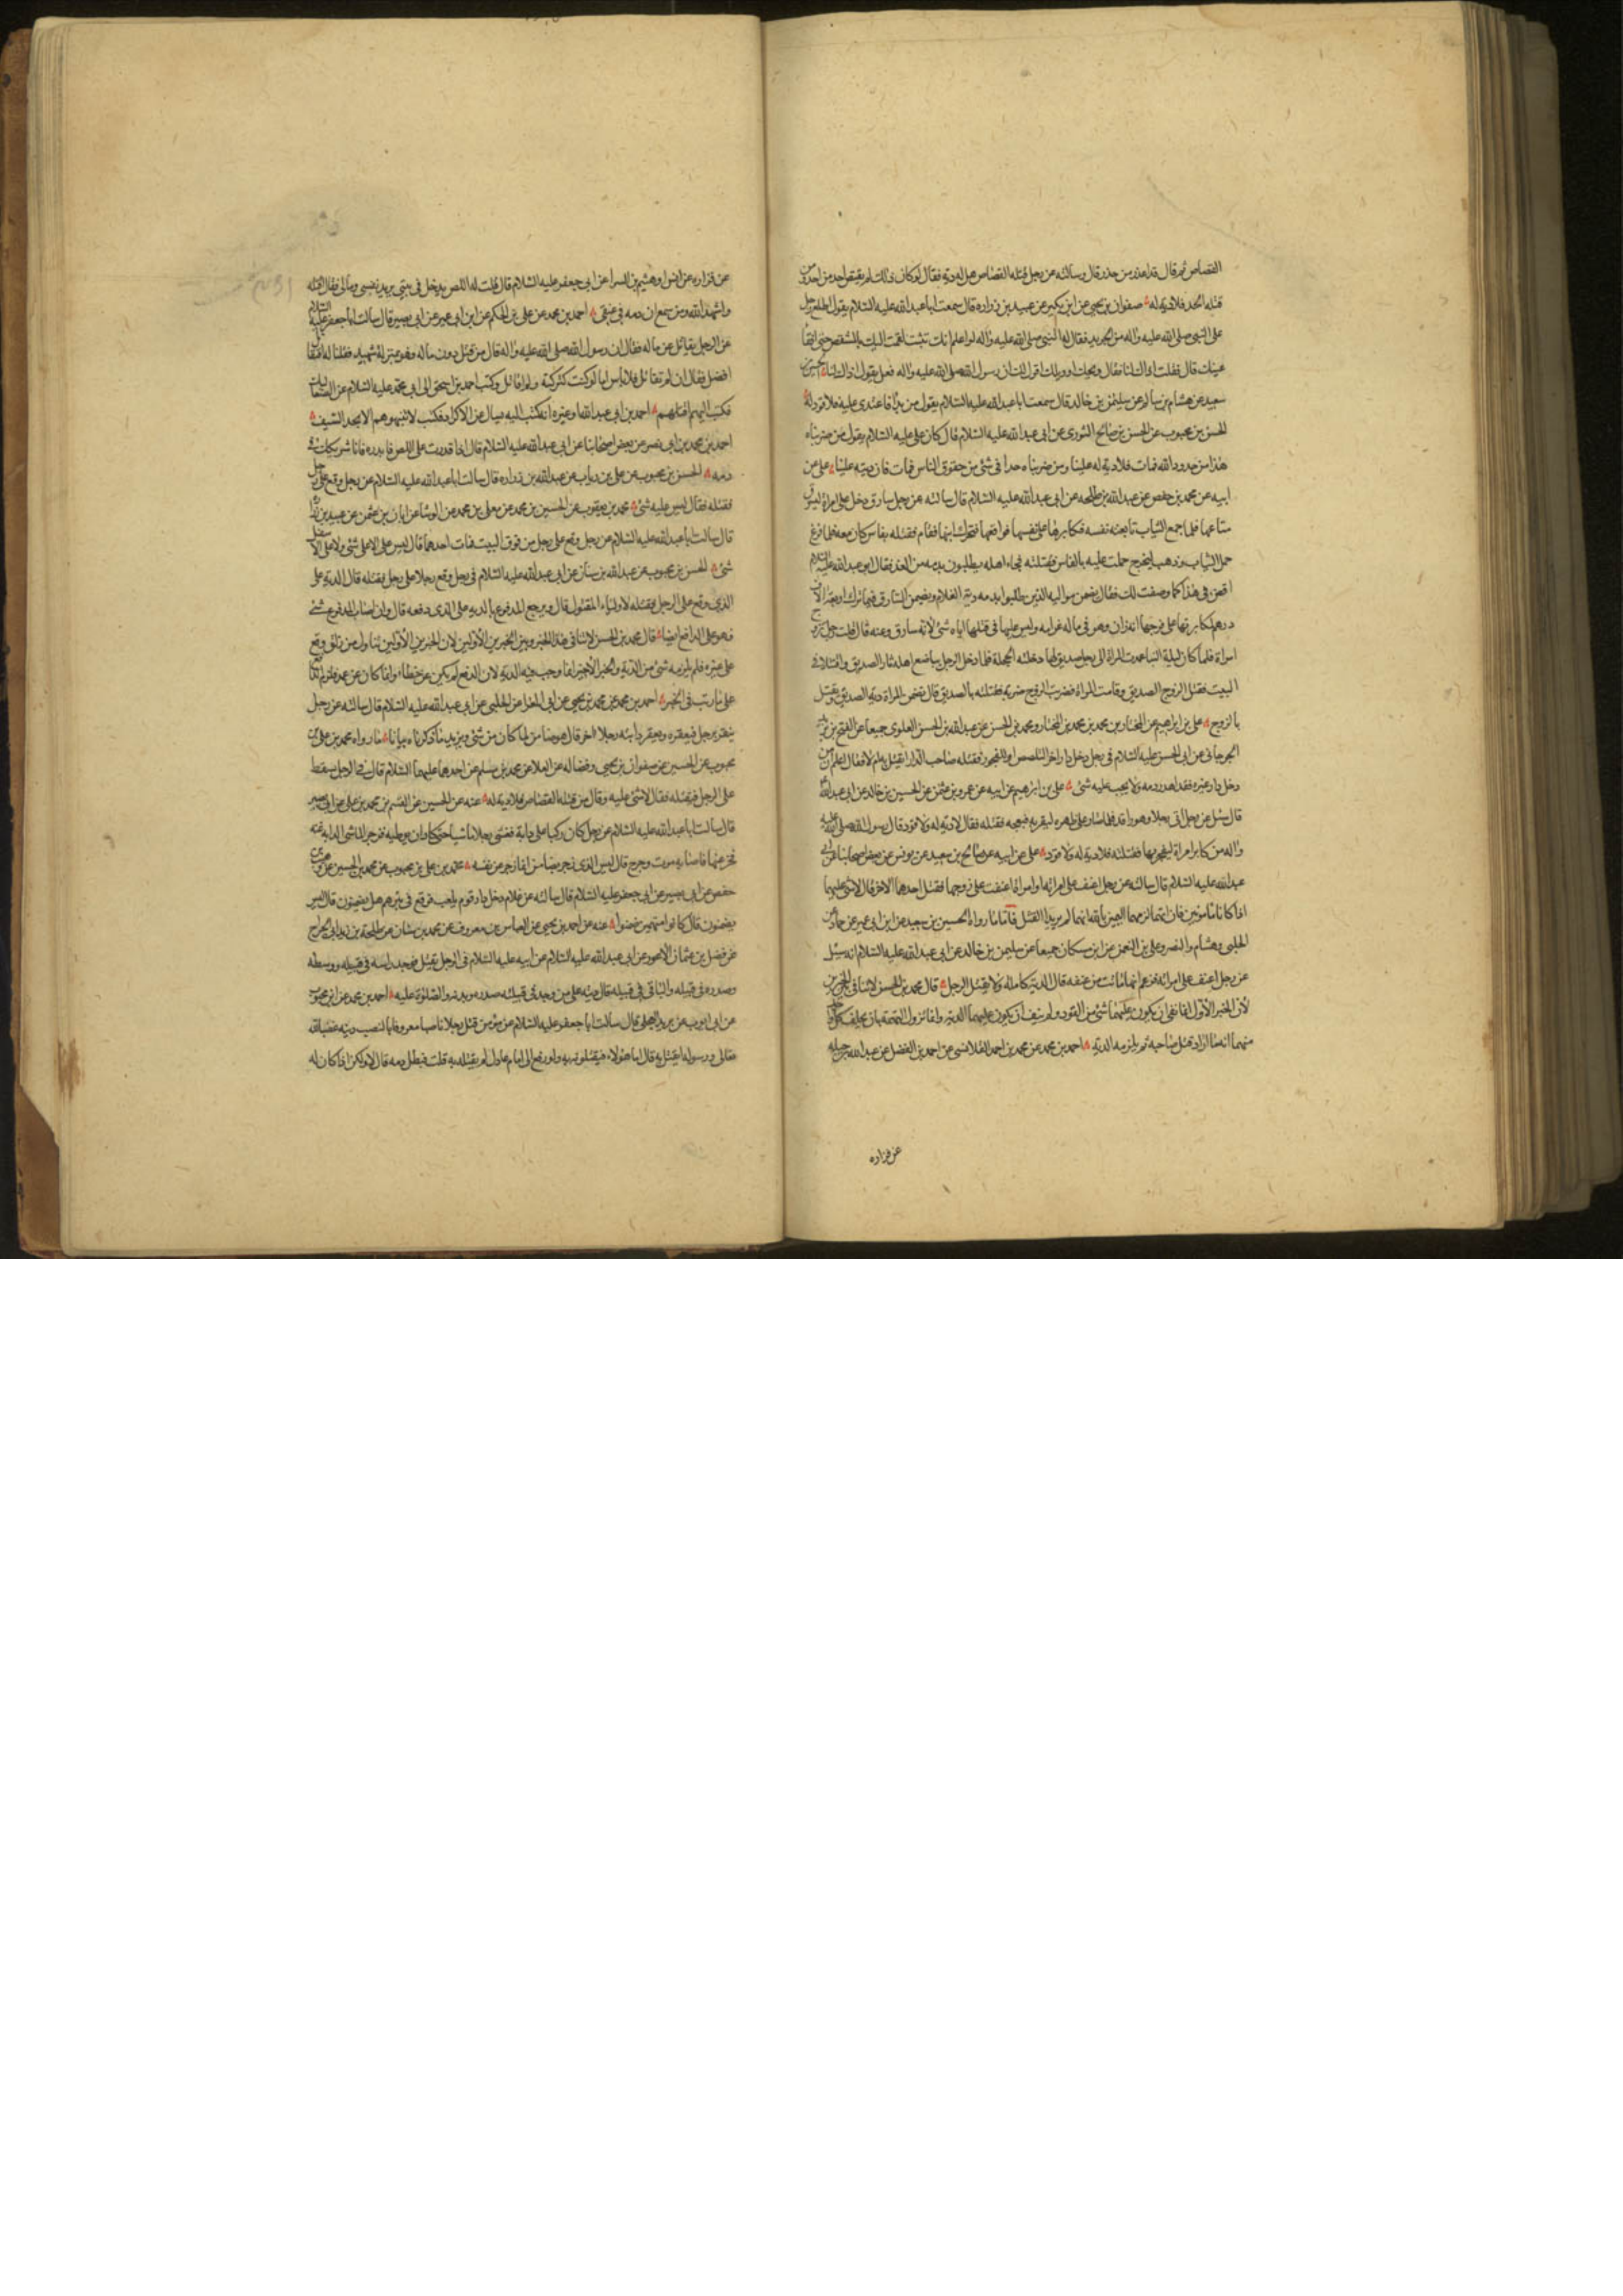 القصاص ثم قال قد اعذر من حذر قال وسالته عن رجل قتله القصاص هل له دية فقال لو كان ذلك لم يقتص احد من احد ومن
قتله الحد فلا دية له صفوان بن يحيى عن ابن بكير عن عبيد بن زراره قال سمعت ابا عبد الله عليه السلام يقول اطلع رجل
على النبي صلى الله عليه واله من الجريد فقال له النبي صلى الله عليه واله لو اعلم انك تثبت لقمت اليك بالمشقص حتى افقأ
عينك قال فقلت اذاك لنا فقال ويحك او ويلك اقول لك ان رسول الله صلى الله عليه واله فعل يقول اذاك لنا الحسين بن
سعيد عن هشام بن سالم عن سليمن بن خالد قال سمعت ابا عبد الله عليه السلام يقول من بدأ فاعتدى عليه فلا قود له
الحسن بن محبوب عن الحسن بن صالح الثوري عن ابي عبد الله عليه السلام قال كان علي عليه السلام يقول من ضربناه
هذا من حدود الله فمات فلا دية له علينا ومن ضربناه حدا في شئ من حقوق الناس فمات فان ديته علينا علي عن
ابيه عن محمد بن حفص عن عبد الله بن طلحه عن ابي عبد الله عليه السلام قال سالته عن رجل سارق دخل على امراة ليسرق
متاعها فلما جمع الثياب تابعته نفسه فكابرها على نفسها فواقعها فتحرك ابنها فقام فقتله بفاس كان معه فلما فرغ
حمل الثياب وذهب ليخرج حملت عليه بالفاس فقتلته فجاء اهله يطلبون بدمه من الغد فقال ابو عبد الله عليه السلام
اقض في هذا كما وصفت لك فقال يضمن مواليه الذين طلبوا بدمه دية الغلام ويضمن السارق فيما ترك اربعة الاف
درهم لمكابرتها على فرجها انه زان وهو في ماله غرامه وليس عليها في قتلها اياه شئ لانه سارق وعنه قال قلت رجل تزوج
امراة فلما كان ليلة البنا عمدت المراة الى رجل صديق لها دخلته الحجلة فلما دخل الرجل يباضع اهله ثار الصديق واقتتلا في
البيت فقتل الزوج الصديق وقامت المراة فضربت الزوج ضربة فقتلته بالصديق قال تضمن المراة دية الصديق وتقتل
بالزوج علي بن ابراهيم عن المختار بن محمد بن محمد بن المختار ومحمد بن الحسن عن عبد الله بن الحسن العلوي جميعا عن الفتح بن يزيد
الجرجاني عن ابي الحسن عليه السلام في رجل دخل دار اخر للتلصص او الفجور فقتله صاحب الدار ايقتل به ام لا فقال اعلم ان من
دخل دار غيره فقد اهدر دمه ولا يجب عليه شئ علي بن ابرهيم عن ابيه عن عمرو بن عثمن عن الحسين بن خالد عن ابي عبد الله
قال سئل عن رجل اتى رجلا وهو راقد فلما صار على ظهره ليقربه فبعجه فقتله فقال لا دية له ولا قود قال رسول الله صلى الله عليه
واله من كابر امراة ليفجر بها فقتلته فلا دية له ولا قود علي عن ابيه عن صالح بن سعيد عن يونس عن بعض اصحابنا عن ابي
عبد الله عليه السلام قال سالته عن رجل اعنف على امراته او امراة اعنفت على زوجها فقتل احدهما الاخر قال لا شئ عليهما
اذا كانا مامونين فان اتهما لزمهما اليمين بالله انهما لم يريدا القتل فاما ما رواه الحسين بن سعيد عن ابن ابي عمير عن حماد عن
الحلبي وهشام والنضر وعلي بن النعمن عن ابن مسكان جميعا عن سليمن بن خالد عن ابي عبد الله عليه السلام انه سئل
عن رجل اعنف على امراته فزعم انها ماتت من عنفه قال الدية كاملة ولا يقتل الرجل قال محمد بن الحسن لا تنافي بين الخبرين
لان الخبر الاول انما نفى ان يكون عليهما شئ من القود ولم ينف ان يكون عليهما الدية وانما تزول التهمة بان يحلف كل واحد
منهما انه ما اراد قتل صاحبه ثم يلزمه الدية احمد بن محمد عن محمد بن احمد القلانسي عن احمد بن الفضل عن عبد الله بن جبله
عن فزاره
عن فزاره عن انس او هيثم بن البرا عن ابي جعفر عليه السلام قال قلت له اللص يدخل في بيتي يريد نفسي ومالي فقال اقتله
واشهد الله ومن سمع ان دمه في عنقي احمد بن محمد عن علي بن الحكم عن ابن ابي عمير عن ابي بصير قال سالت ابا جعفر عليه السلام
عن الرجل يقاتل عن ماله فقال ان رسول الله صلى الله عليه واله قال من قتل دون ماله فهو بمنزلة شهيد فقلنا له افيقاتل
افضل فقال ان لم تقاتل فلا باس اما لو كنت لتركته ولم اقاتل وكتب احمد بن اسحق الى ابي محمد عليه السلام عن
فكتب اليهم اقتلهم احمد بن ابي عبد الله او غيره انه كتب اليه يسال عن الاكراد فكتب لا تنبهوهم الا بحد السيف
احمد بن محمد بن ابي نصر عن بعض اصحابنا عن ابي عبد الله عليه السلام قال اذا قدرت على اللص فابدره فانا شريكك في
دمه الحسن بن محبوب عن علي بن رياب عن عبد الله بن زراره قال سالت ابا عبد الله عليه السلام عن رجل وقع على رجل
فقتله فقال ليس عليه شئ محمد بن يعقوب عن الحسين بن محمد عن معلى بن محمد عن الوشا عن ابان بن عثمن عن عبيد بن زراره
قال سالت ابا عبد الله عليه السلام عن رجل وقع على رجل من فوق البيت فمات احدهما قال ليس على الاعلى شئ ولا على الاسفل
شئ الحسن بن محبوب عن عبد الله بن سنان عن ابي عبد الله عليه السلام في رجل دفع رجلا على رجل فقتله قال الدية على
الذي وقع على الرجل فقتله لاولياء المقتول قال ويرجع المدفوع بالدية على الذي دفعه قال وان اصاب المدفوع شئ
فهو على الدافع ايضا قال محمد بن الحسن لا تنافي هذا الخبر وبين الخبرين الاولين لان الخبرين الاولين تناول من زلق فوقع
على غيره فلم يلزمه شئ من الدية والخبر الاخير انما وجب فيه الدية لان الدفع لم يكن عن خطاء وانما كان عن عمد فلزم
على ما رتب في الخبر احمد بن محمد عن محمد بن يحيى عن ابي المغرا عن الحلبي عن ابي عبد الله عليه السلام قال سالته عن رجل
ينفر برجل فيعقره ويعقر دابته رجلا اخر قال هو ضامن لما كان من شئ ويزيد ما ذكرناه بيانا ما رواه محمد بن علي بن
محبوب عن الحسين عن صفوان بن يحيى وفضاله عن العلا عن محمد بن مسلم عن احدهما عليهما السلام قال في الرجل يسقط
على الرجل فيقتله فقال لا شئ عليه وقال من قتله القصاص فلا دية له عنه عن الحسين عن القسم بن محمد عن علي عن ابي بصير
قال سالت ابا عبد الله عليه السلام عن رجل كان راكبا على دابة فغشي رجلا ماشيا حتى كاد ان يوطيه فزجر الماشي الدابة عنه
فخر عنها فاصابه موت او جرح قال ليس الذي زجر بضامن انما زجر عن نفسه محمد بن علي بن محبوب عن محمد بن الحسين عن وهيب بن
حفص عن ابي بصير عن ابي جعفر عليه السلام قال سالته عن غلام دخل دار قوم يلعب فوقع في بئرهم هل يضمنون قال ليس
يضمنون قال كانوا متهمين ضمنوا عنه عن احمد بن يحيى عن العباس بن معروف عن محمد بن سنان عن طلحة بن زيد ابي الخزرج
عن فضل بن عثمان الاعور عن ابي عبد الله عليه السلام عن ابيه عليه السلام في الرجل يقتل فيوجد راسه في قبيله ووسطه
وصدره في قبيله والباقي في قبيله قال ديته على من وجد في قبيلته صدره ويديه والصلوة عليه احمد بن محمد عن ابن محبوب
عن ابي ايوب عن بريد العجلي قال سالت ابا جعفر عليه السلام عن مؤمن قتل رجلا ناصبا معروفا بالنصب دينه غضبا لله
تعالى ورسوله ايقتل به قال اما هؤلاء فيقتلونه به ولو رفع الى امام عادل لم يقتله به قلت فيبطل دمه قال لا ولكن اذا كان له